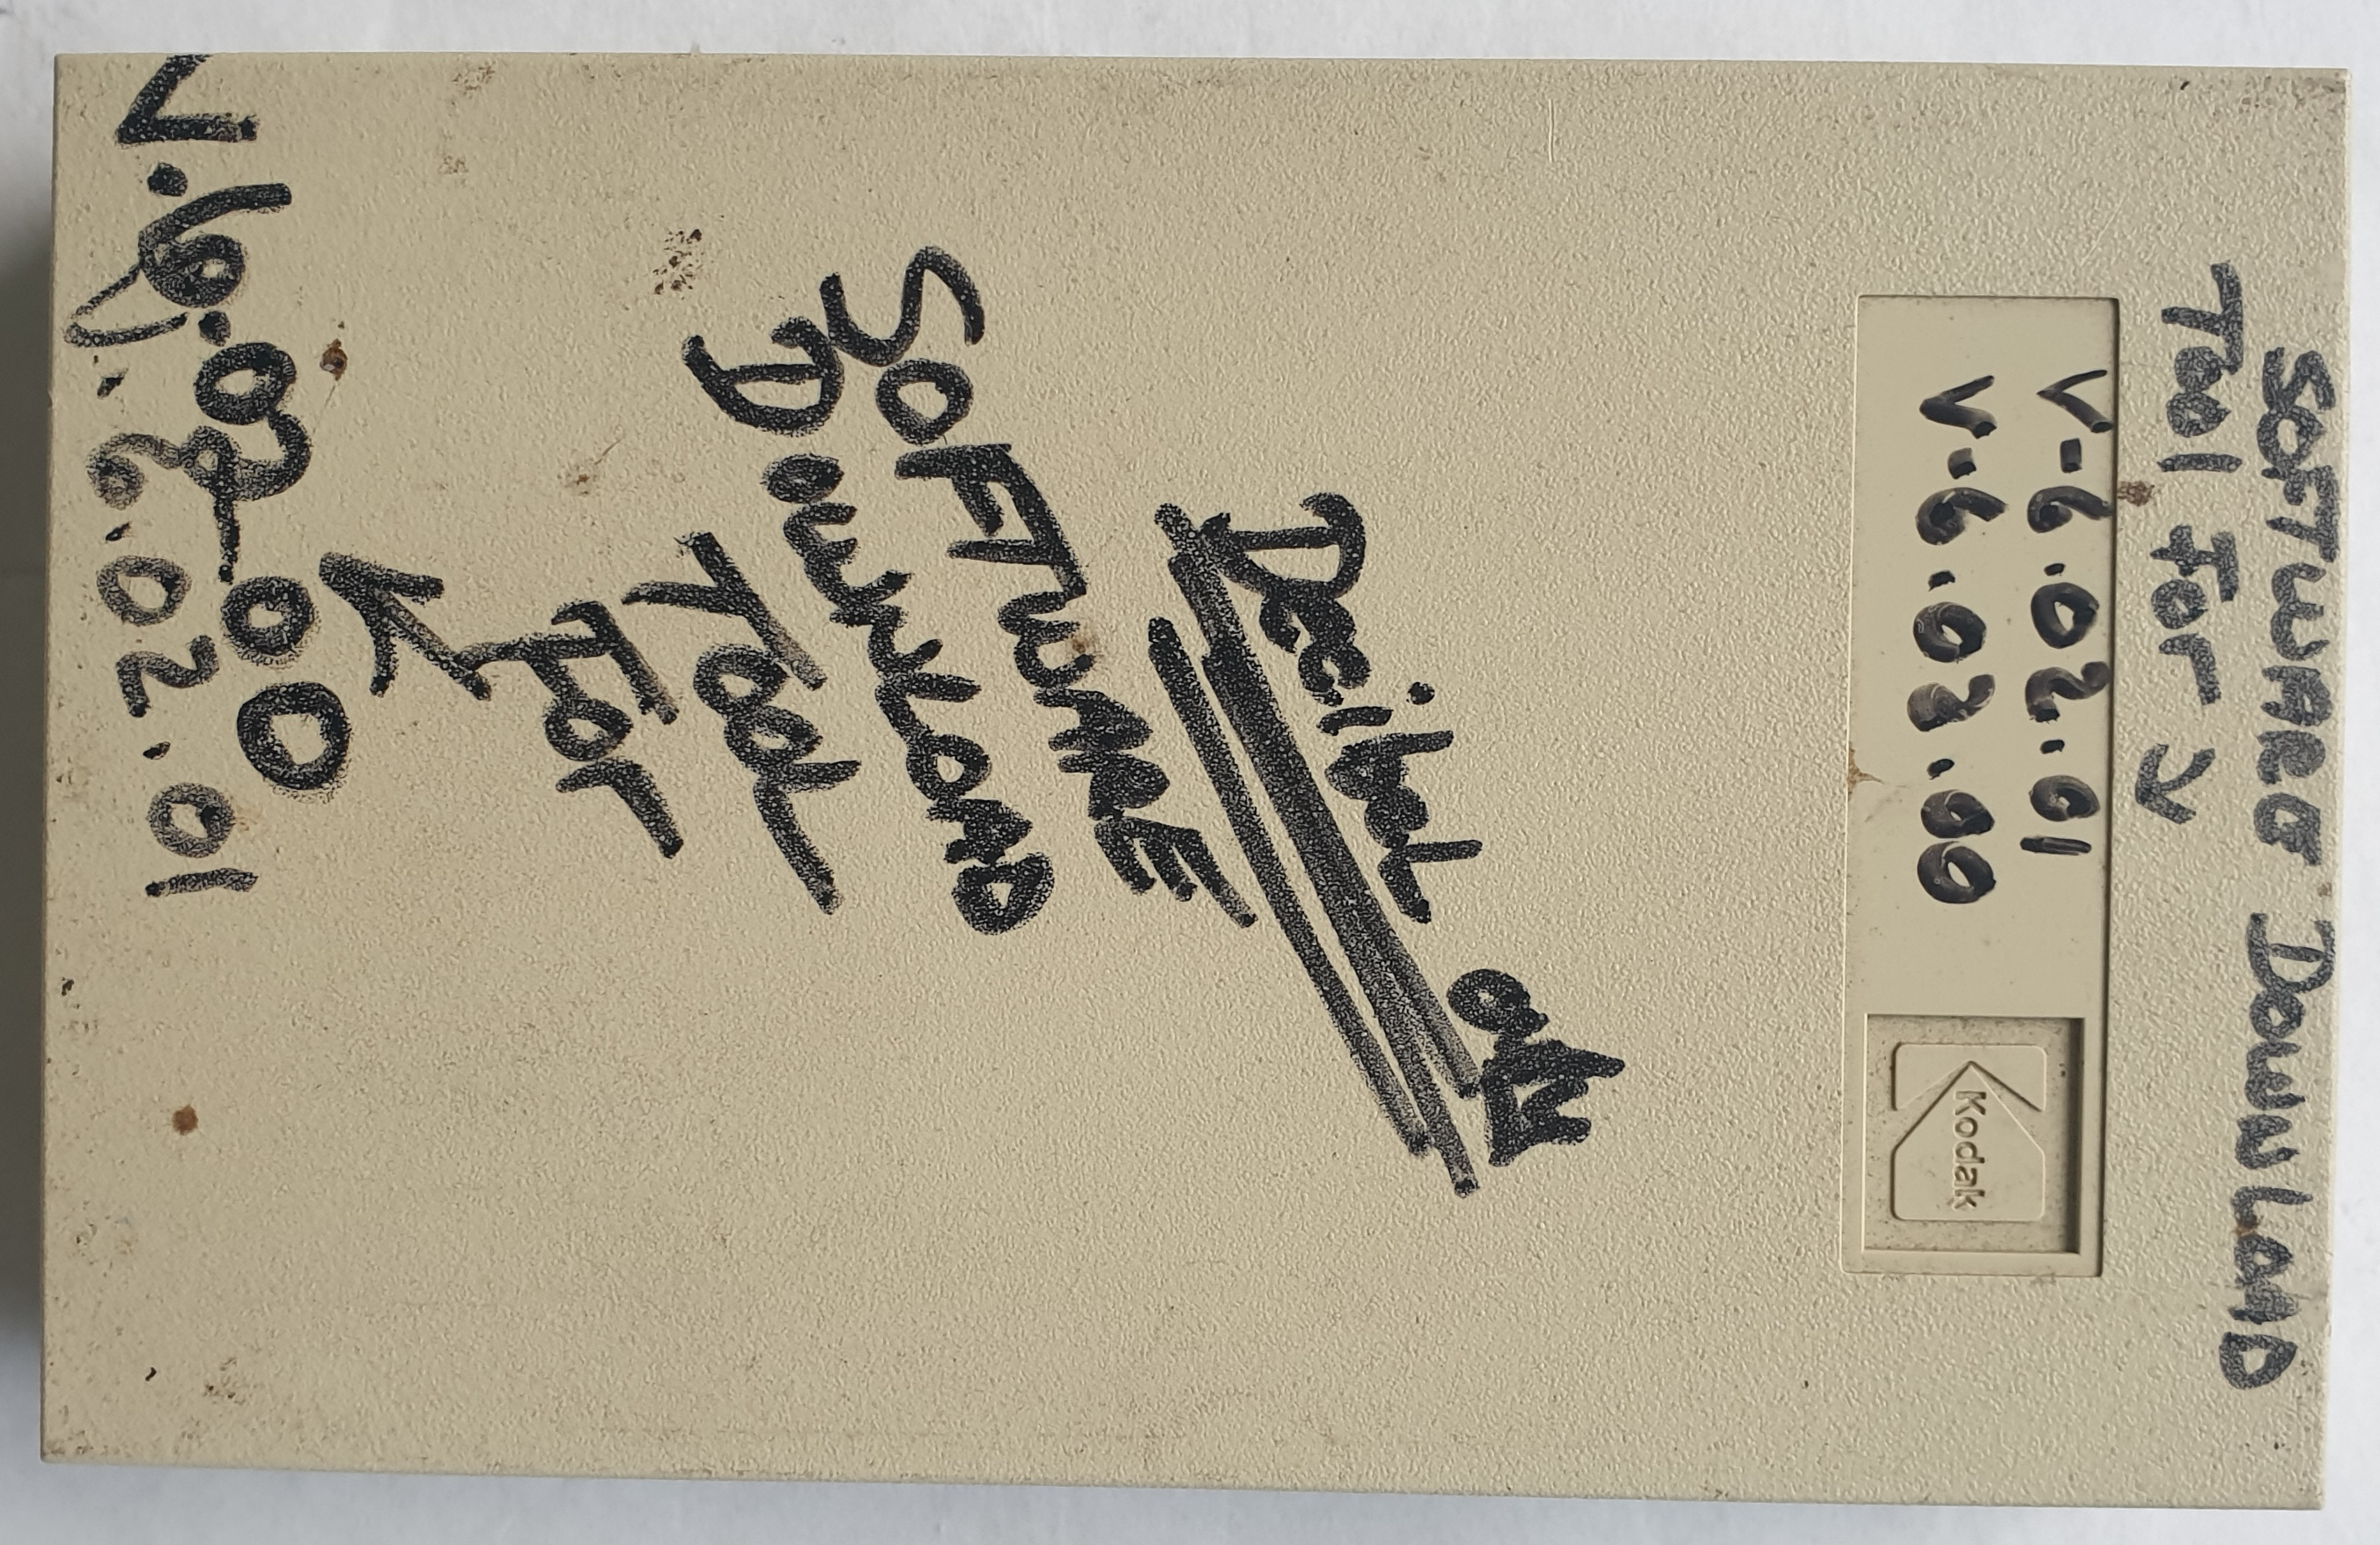 SOFTWARE DOWNLOAD
Tool For ↘
V-6.02.01
V.6.02.00
Kodak
Decibel only
SOFTWARE
DOWNLOAD
TOOL
For
V.6.02.00
6.02.01